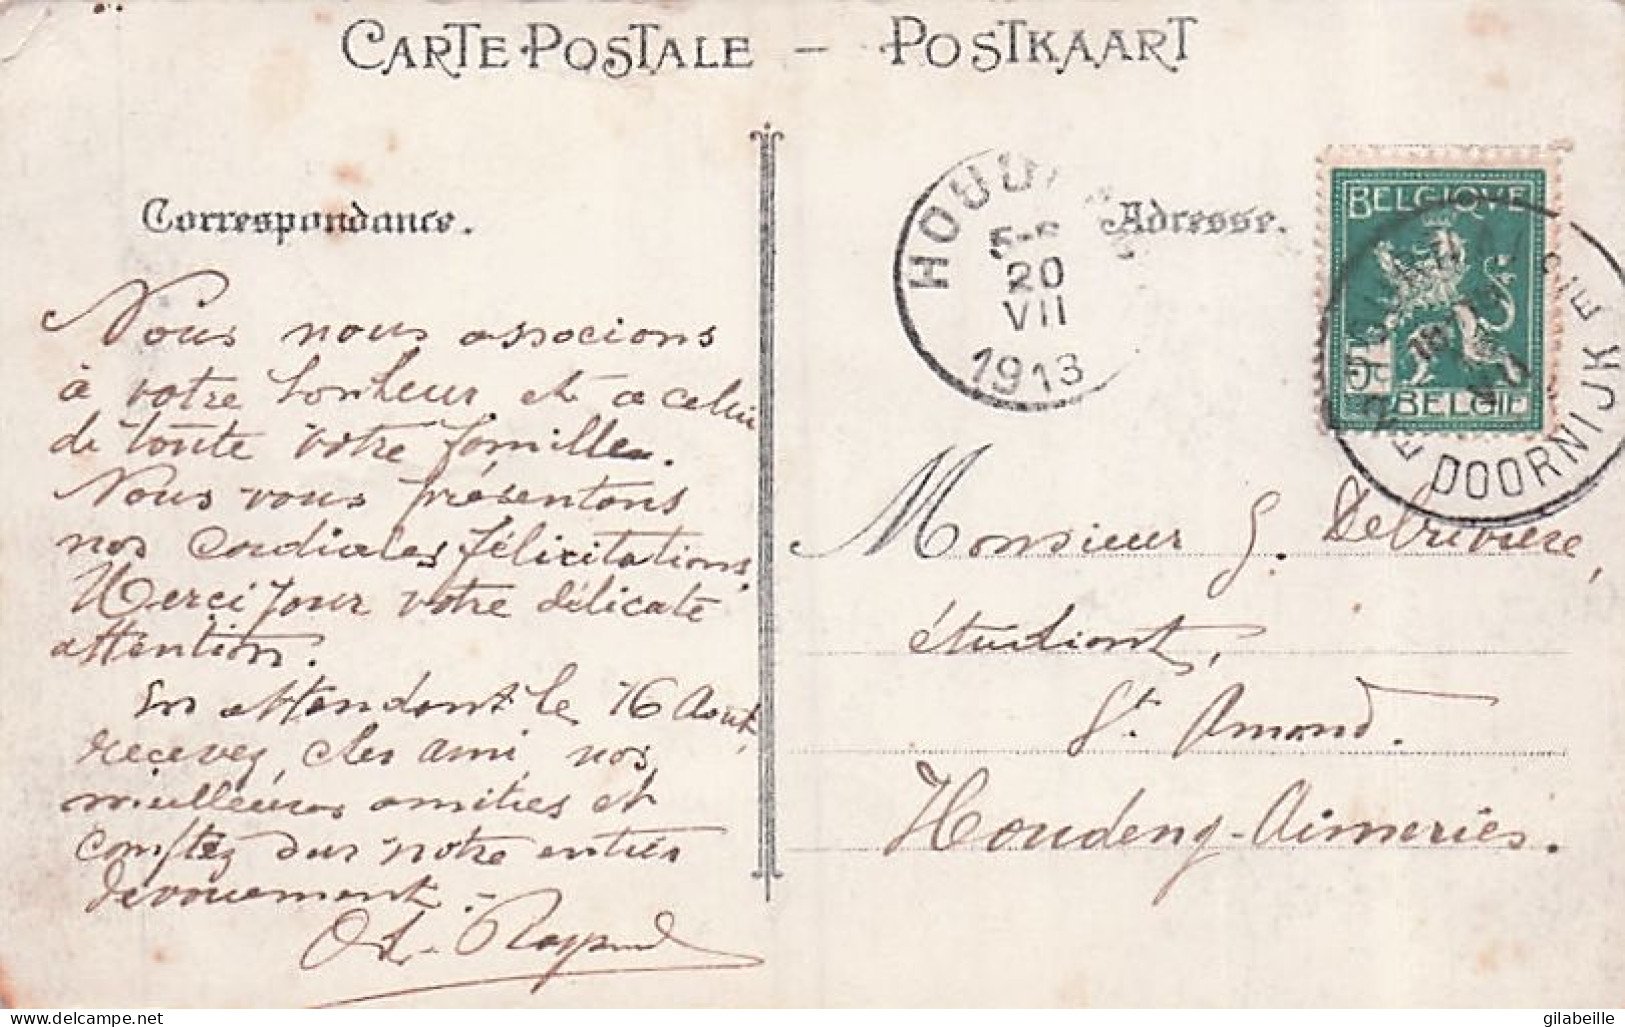 CARTE POSTALE – POSTKAART
Correspondance.
Nous nous associons
à votre bonheur et a celui
de toute votre famille.
Nous vous présentons
nos cordiales félicitations.
Merci pour votre délicate
attention.
En attendant le 16 Août,
recevez, cher ami nos
meilleures amitiés et
comptez sur notre entier
dévouement.-
HOUD
20
VII
1913
Adresse.
BELGIQUE
5c
BELGIE
DOORNIJK
Monsieur G. Debrivière,
étudiant,
St. Amand.
Houdeng-Aimeries.
delcampe.net
gilabeille